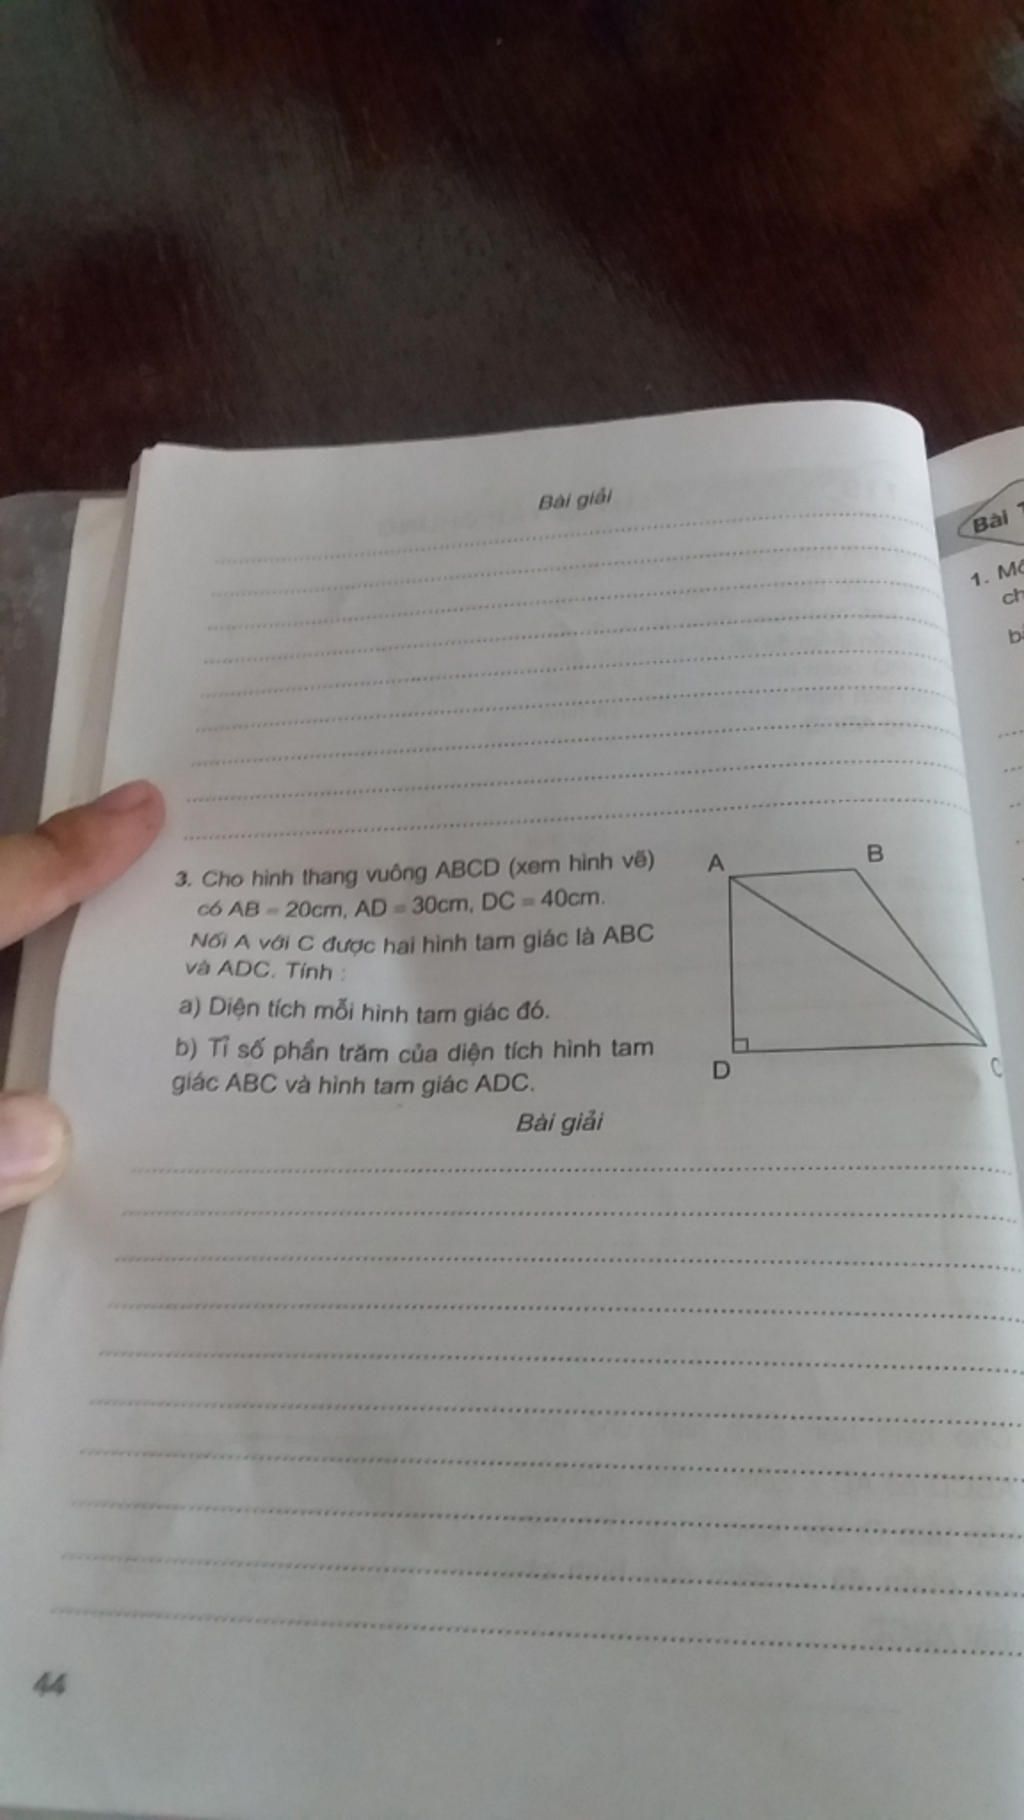 Bài giải
3. Cho hình thang vuông ABCD (xem hình vẽ)
có AB = 20cm, AD = 30cm, DC = 40cm.
Nối A với C được hai hình tam giác là ABC
và ADC. Tính :
a) Diện tích mỗi hình tam giác đó.
b) Tỉ số phần trăm của diện tích hình tam
giác ABC và hình tam giác ADC.
A
B
D
C
Bài giải
44
Bài
1.